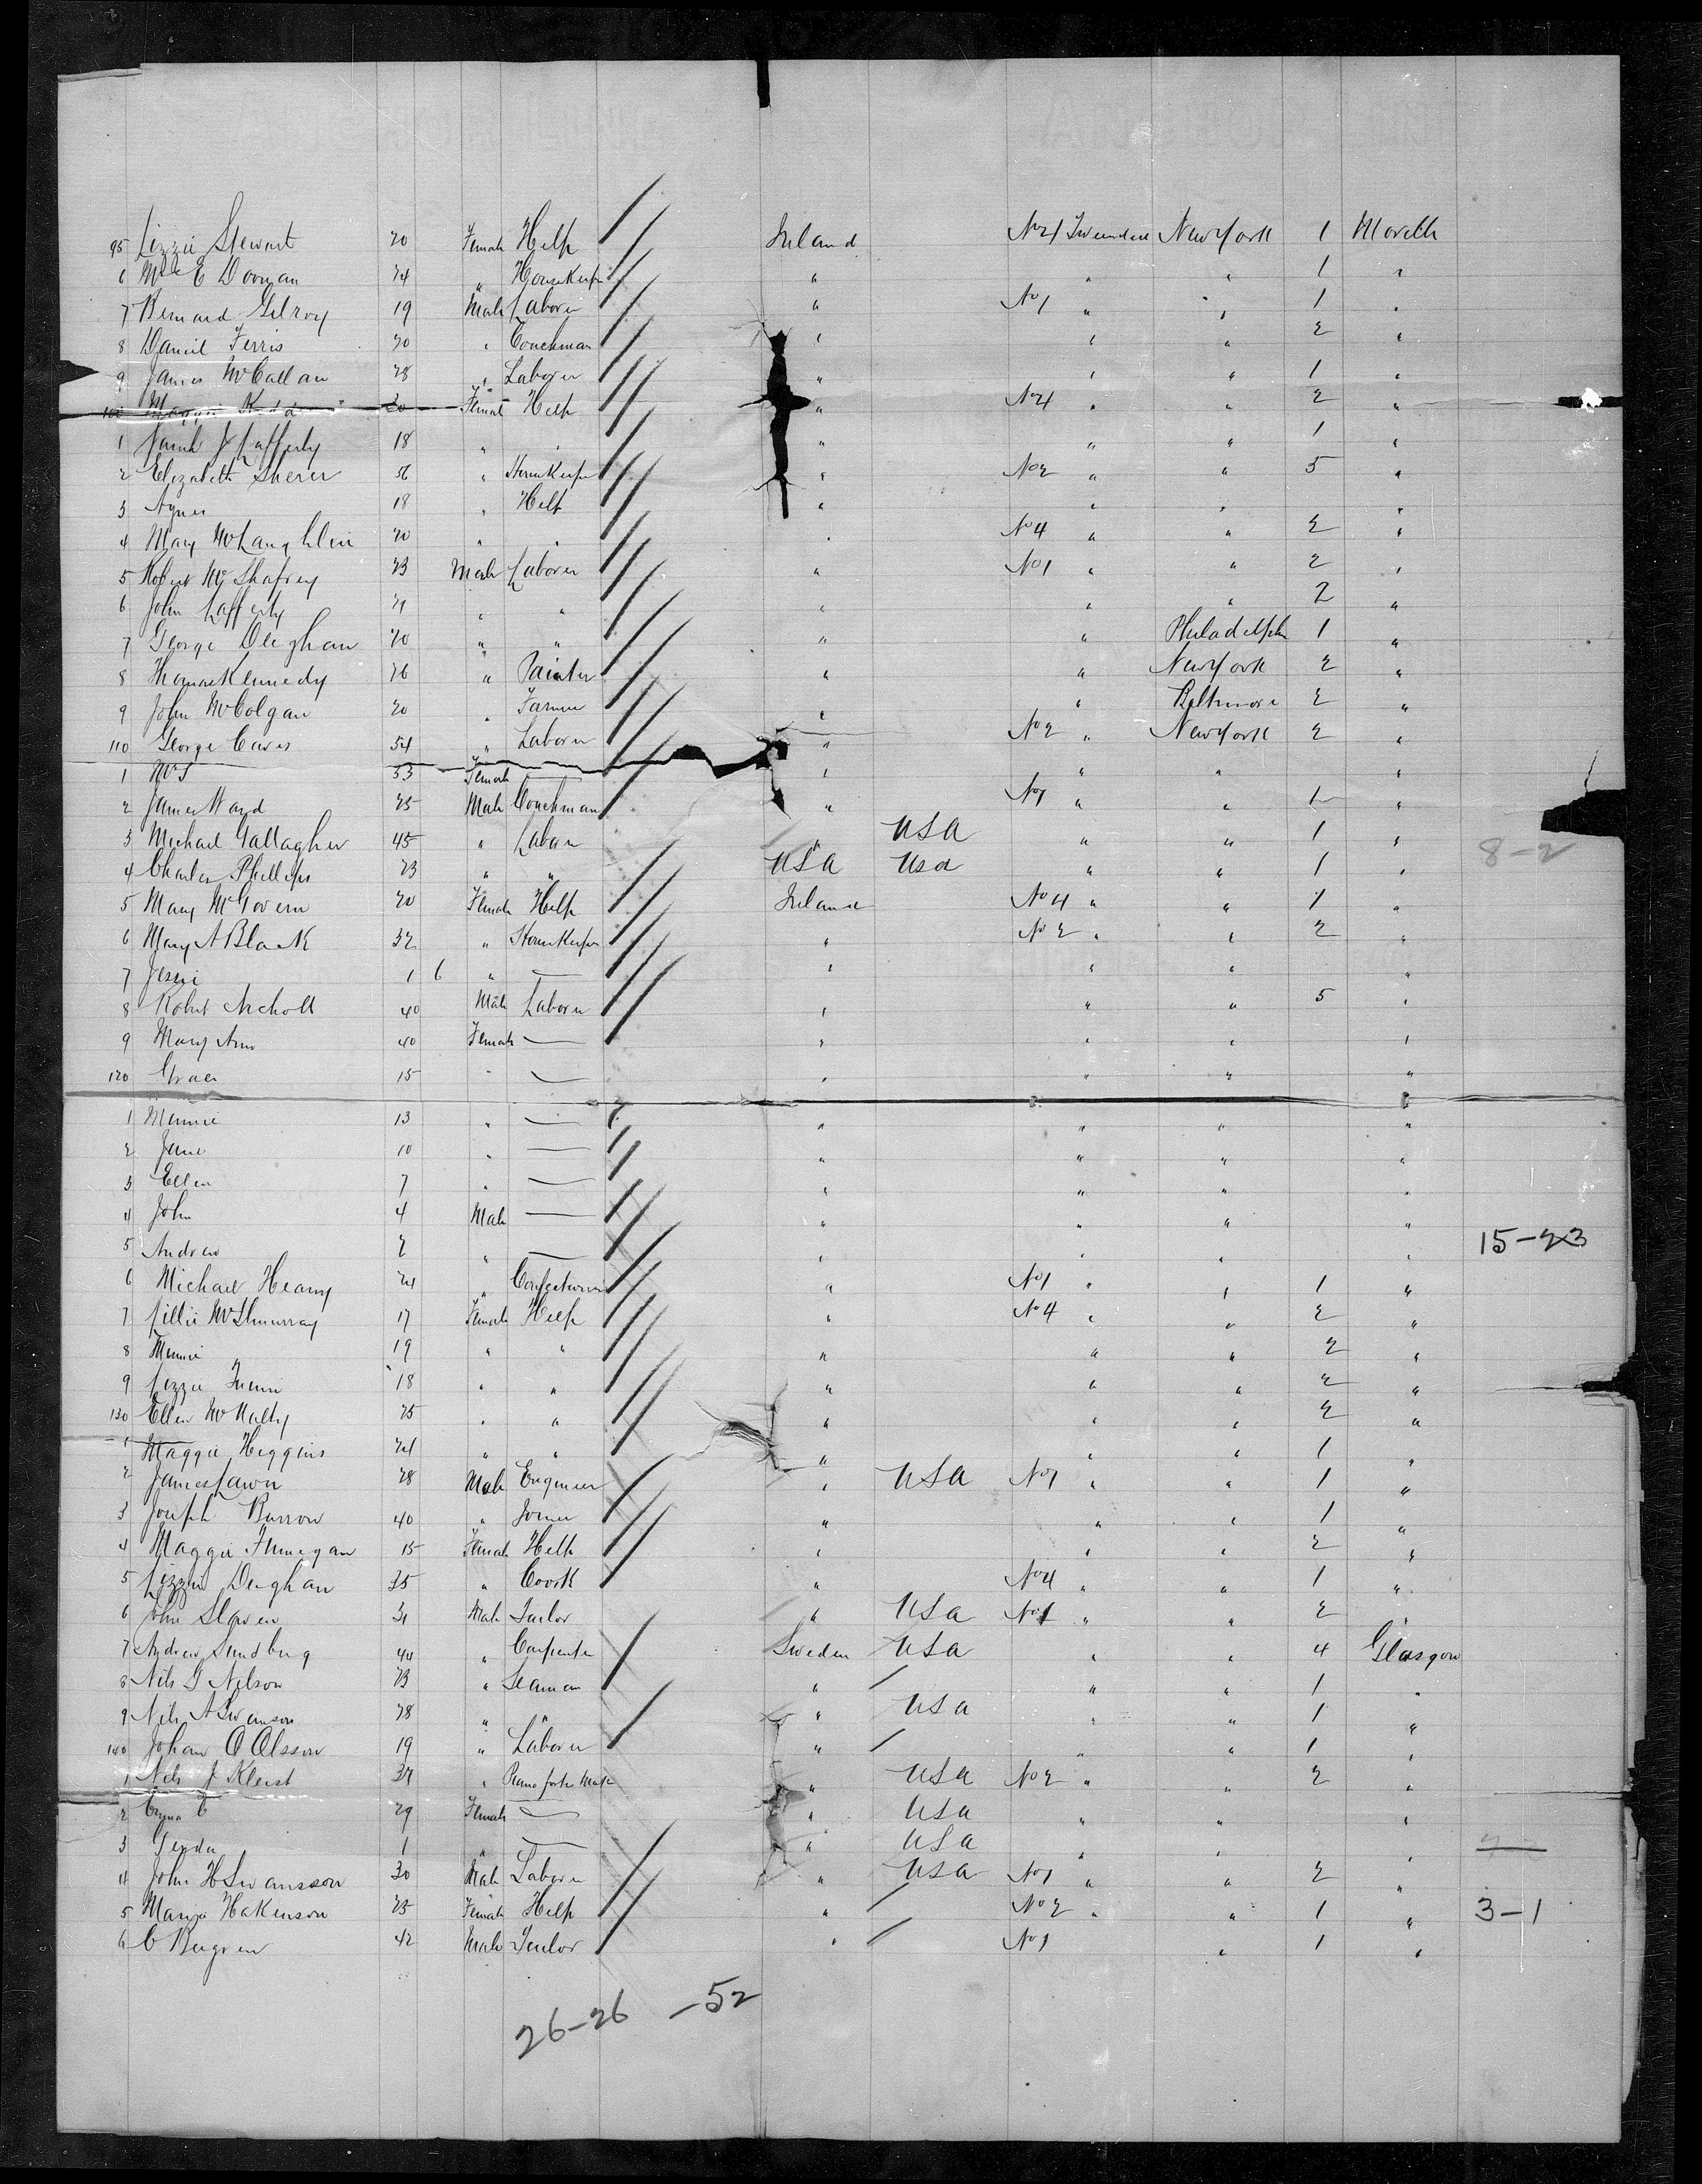 95 Lizzie Stewart 20 Female Help Ireland No 4 Tweendeck New York 1 Moville
6 Mrs E Doorgan 24 " Housekeeper " " " 1 "
7 Bernard Gilroy 19 Male Laborer " No 1 " " 1 "
8 Daniel Ferris 20 " Coachman " " " 2 "
9 James McCallan 28 " Laborer " " " 1 "
100 Maggie Kidd 20 Female Help " No 4 " " 2 "
1 Sarah J Lafferty 18 " " " " " 1 "
2 Elizabeth Sherer 56 " Housekeeper " No 2 " " 5 "
3 Agnes 18 " Help " " " "
4 Mary McLaughlin 20 " " " No 4 " " 2 "
5 Robert McShafrey 23 Male Laborer " No 1 " " 2 "
6 John Lafferty 21 " " " " " 2 "
7 George Deeghan 20 " " " " Philadelphia 1 "
8 Thomas Kennedy 26 " Painter " " New York 2 "
9 John McColgan 20 " Farmer " " Baltimore 2 "
110 George Caves 54 " Laborer " No 2 " New York 2 "
1 Mrs 53 Female — " " " "
2 James Ward 25 Male Coachman " No 1 " " 1 "
3 Michael Gallagher 45 " Laborer " USA " " 1 " 8-2
4 Charles Phillips 23 " " USA USA " " 1 "
5 Mary McGovern 20 Female Help Ireland No 4 " " 1 "
6 Mary A Black 32 " Housekeeper " No 2 " " 2 "
7 Jessie 1 6 " — " " " "
8 Robert Nicholl 40 Male Laborer " " " 5 "
9 Mary Ann 40 Female — " " " "
120 Grace 15 " — " " " "
1 Minnie 13 " — " " " "
2 Jane 10 " — " " " "
3 Ellen 7 " — " " " "
4 John 4 Male — " " " "
5 Andrew 2 " — " " " " 15-23
6 Michael Heany 21 " Confectioner " No 1 " " 1 "
7 Lillie 17 Female Help " No 4 " " 2 "
8 Minnie 19 " " " " " 2 "
9 Lizzie 18 " " " " " 2 "
130 Ellen McNalty 25 " " " " " 2 "
1 Maggie Higgins 21 " " " " " 1 "
2 James Lawn 28 Male Engineer " USA No 1 " " 1 "
3 Joseph Burrow 40 " Joiner " " " 1 "
4 Maggie Finnegan 15 Female Help " " " 2 "
5 Lizzie Deeghan 35 " Cook " No 4 " " 1 "
6 John Slaven 31 Male Tailor " USA No 1 " " 2 "
7 Andrew Sundburg 40 " Carpenter Sweden USA " " 4 Glasgow
8 Nils G Nelson 23 " Seaman " / " " 1 "
9 Nils A Swanson 28 " " " USA " " 1 "
140 Johan O Olsson 19 " Laborer " / " " 1 "
1 Nils J Kleist 37 " Piano forte Maker " USA No 2 " " 2 "
2 29 Female — " USA " " "
3 Gerda 1 " — " USA " " "
4 John H Swansson 30 Male Laborer " USA No 1 " " 2 "
5 Maria Hakenson 25 Female Help " / No 2 " " 1 " 3-1
6 C Bergren 42 Male Tailor " / No 1 " 1 "
26-26 -52